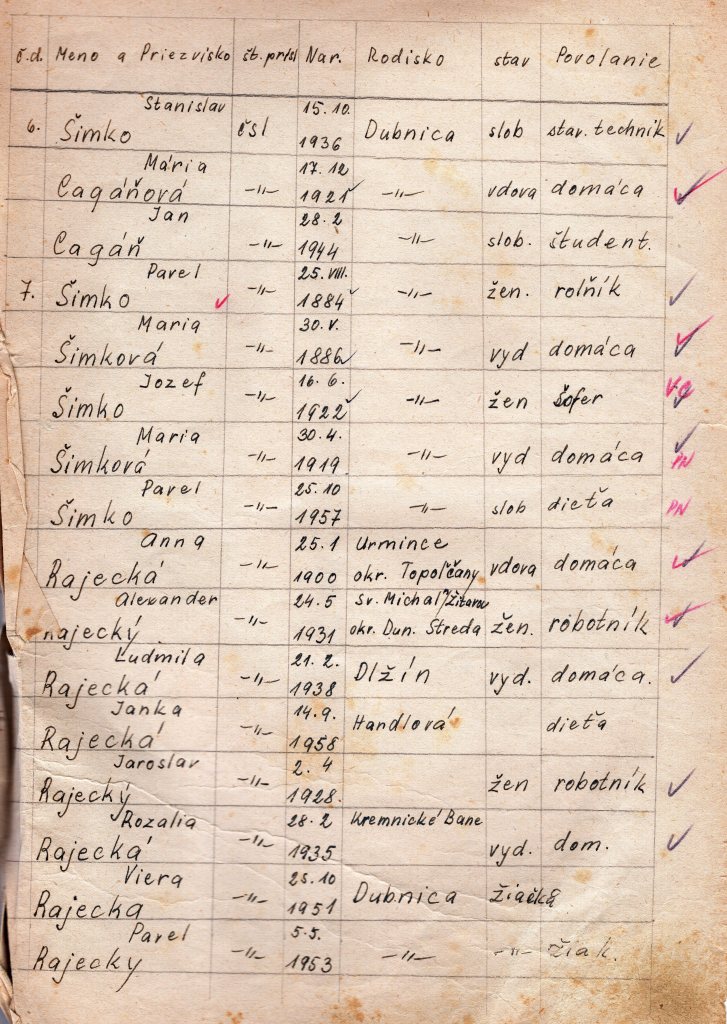 č.d. Meno a Priezvisko št.prísl Nar. Rodisko stav Povolanie
Stanislav 15.10.
6. Šimko čsl 1936 Dubnica slob stav. technik ✓
Mária 17.12
Cagáňová -"- 1921 ✓ -"- vdova domáca ✓
Jan 28.2
Cagáň -"- 1944 -"- slob. študent.
Pavel 25.VIII.
7. Šimko ✓ -"- 1884 ✓ -"- žen. rolňík ✓
Maria 30.V.
Šimková -"- 1886 ✓ -"- vyd domáca ✓
Jozef 16.6.
Šimko -"- 1922 ✓ -"- žen šofer ✓
Maria 30.4.
Šimková -"- 1919 -"- vyd domáca ✓ PN
Pavel 25.10
Šimko -"- 1957 -"- slob dieťa PN
Anna 25.1 Urmince
Rajecká -"- 1900 okr. Topoľčany vdova domáca ✓
Alexander 24.5 Sv. Michal
Rajecký -"- 1931 okr. Dun. Streda žen. robotník ✓
Ľudmila 21.2.
Rajecká -"- 1938 Dlžín vyd. domáca. ✓
Janka 14.9.
Rajecká -"- 1958 Handlová dieťa
Jaroslav 2.4
Rajecký -"- 1928. žen robotník ✓
Rozalia 28.2 Kremnické Bane
Rajecká -"- 1935 vyd. dom. ✓
Viera 25.10
Rajecka -"- 1951 Dubnica žiačka
Pavel 5.5.
Rajecky -"- 1953 -"- -"- žiak.